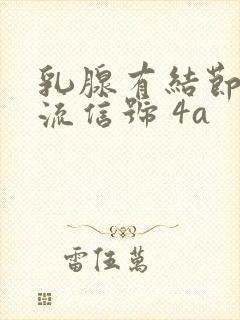 乳腺有結節
流信號 4a
雷伍萬